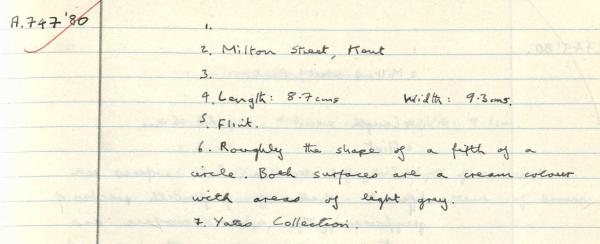 A.747'80
1.
2. Milton Street, Kent
3.
4. Length: 8.7cms Width: 9.3cms.
5. Flint.
6. Roughly the shape of a fifth of a
circle. Both surfaces are a cream colour
with areas of light grey.
7. Yates Collection.